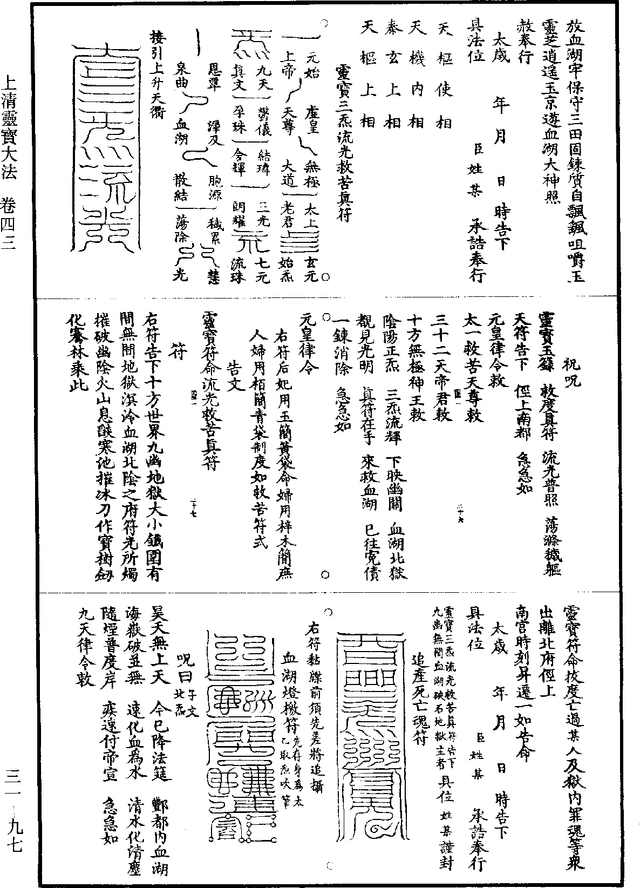 上清靈寶大法 卷四三
三一·九七
放血湖牢保守三田固鍊質自飄颻咀嚼玉
靈芝逍遙玉京遊血湖大神照
赦奉行
太歲 年 月 日 時告下
具法位 臣姓某 承誥奉行
天樞使相
天機內相
秦玄上相
天樞上相
靈寶三炁流光救苦真符
元始 虛皇 無極 太上 玄元
上帝 天尊 大道 老君 始炁
九天 鬱儀 結璘 三光 七元
真文 孕珠 合輝 朗耀 流珠
恩罩 澤及 胞源 穢累 慧
泉曲 血湖 散結 蕩除 光
接引上升天衢
祝呪
靈寶玉籙 救度真符 流光普照 蕩滌穢軀
天符告下 徑上南都 急急如
元皇律令敕
太一救苦天尊敕
三十二天帝君敕
十方無極神王敕
陰陽正炁 三炁流輝 下映幽關 血湖北獄
覩見光明 真符在手 來救血湖 已往冤債
一鍊消除 急急如
元皇律令
右符后妃用玉簡黃袋命婦用梓木簡庶
人婦用栢簡青袋制度如敕苦符式
告文
靈寶符命流光救苦真符
符
右符告下十方世界九幽地獄大小鐵圍有
間無間地獄溟泠血湖北陰之府符光所燭
摧破幽陰火山息燄寒池摧冰刀作寶樹劒
化騫林乘此
靈寶符命拔度亡過某人及獄內罪魂等衆
出離北府徑上
南宮時刻昇遷一如告命
太歲 年 月 日 時告下
具法位 臣姓某 承誥奉行
追產死亡魂符
靈寶三炁流光救苦真符告下
九幽無間血湖硤石地獄主者 具位 姓某謹封
右符黏牒前須先差將追攝
血湖燈檄符 先存身為太乙取炁吹筆
呪曰 子文北炁
昊天無上天 今已降法筵 酆都內血湖
海嶽破並無 速化血為水 清水化清塵
隨煙普度岸 疾速付帝宣 急急如
九天律令敕